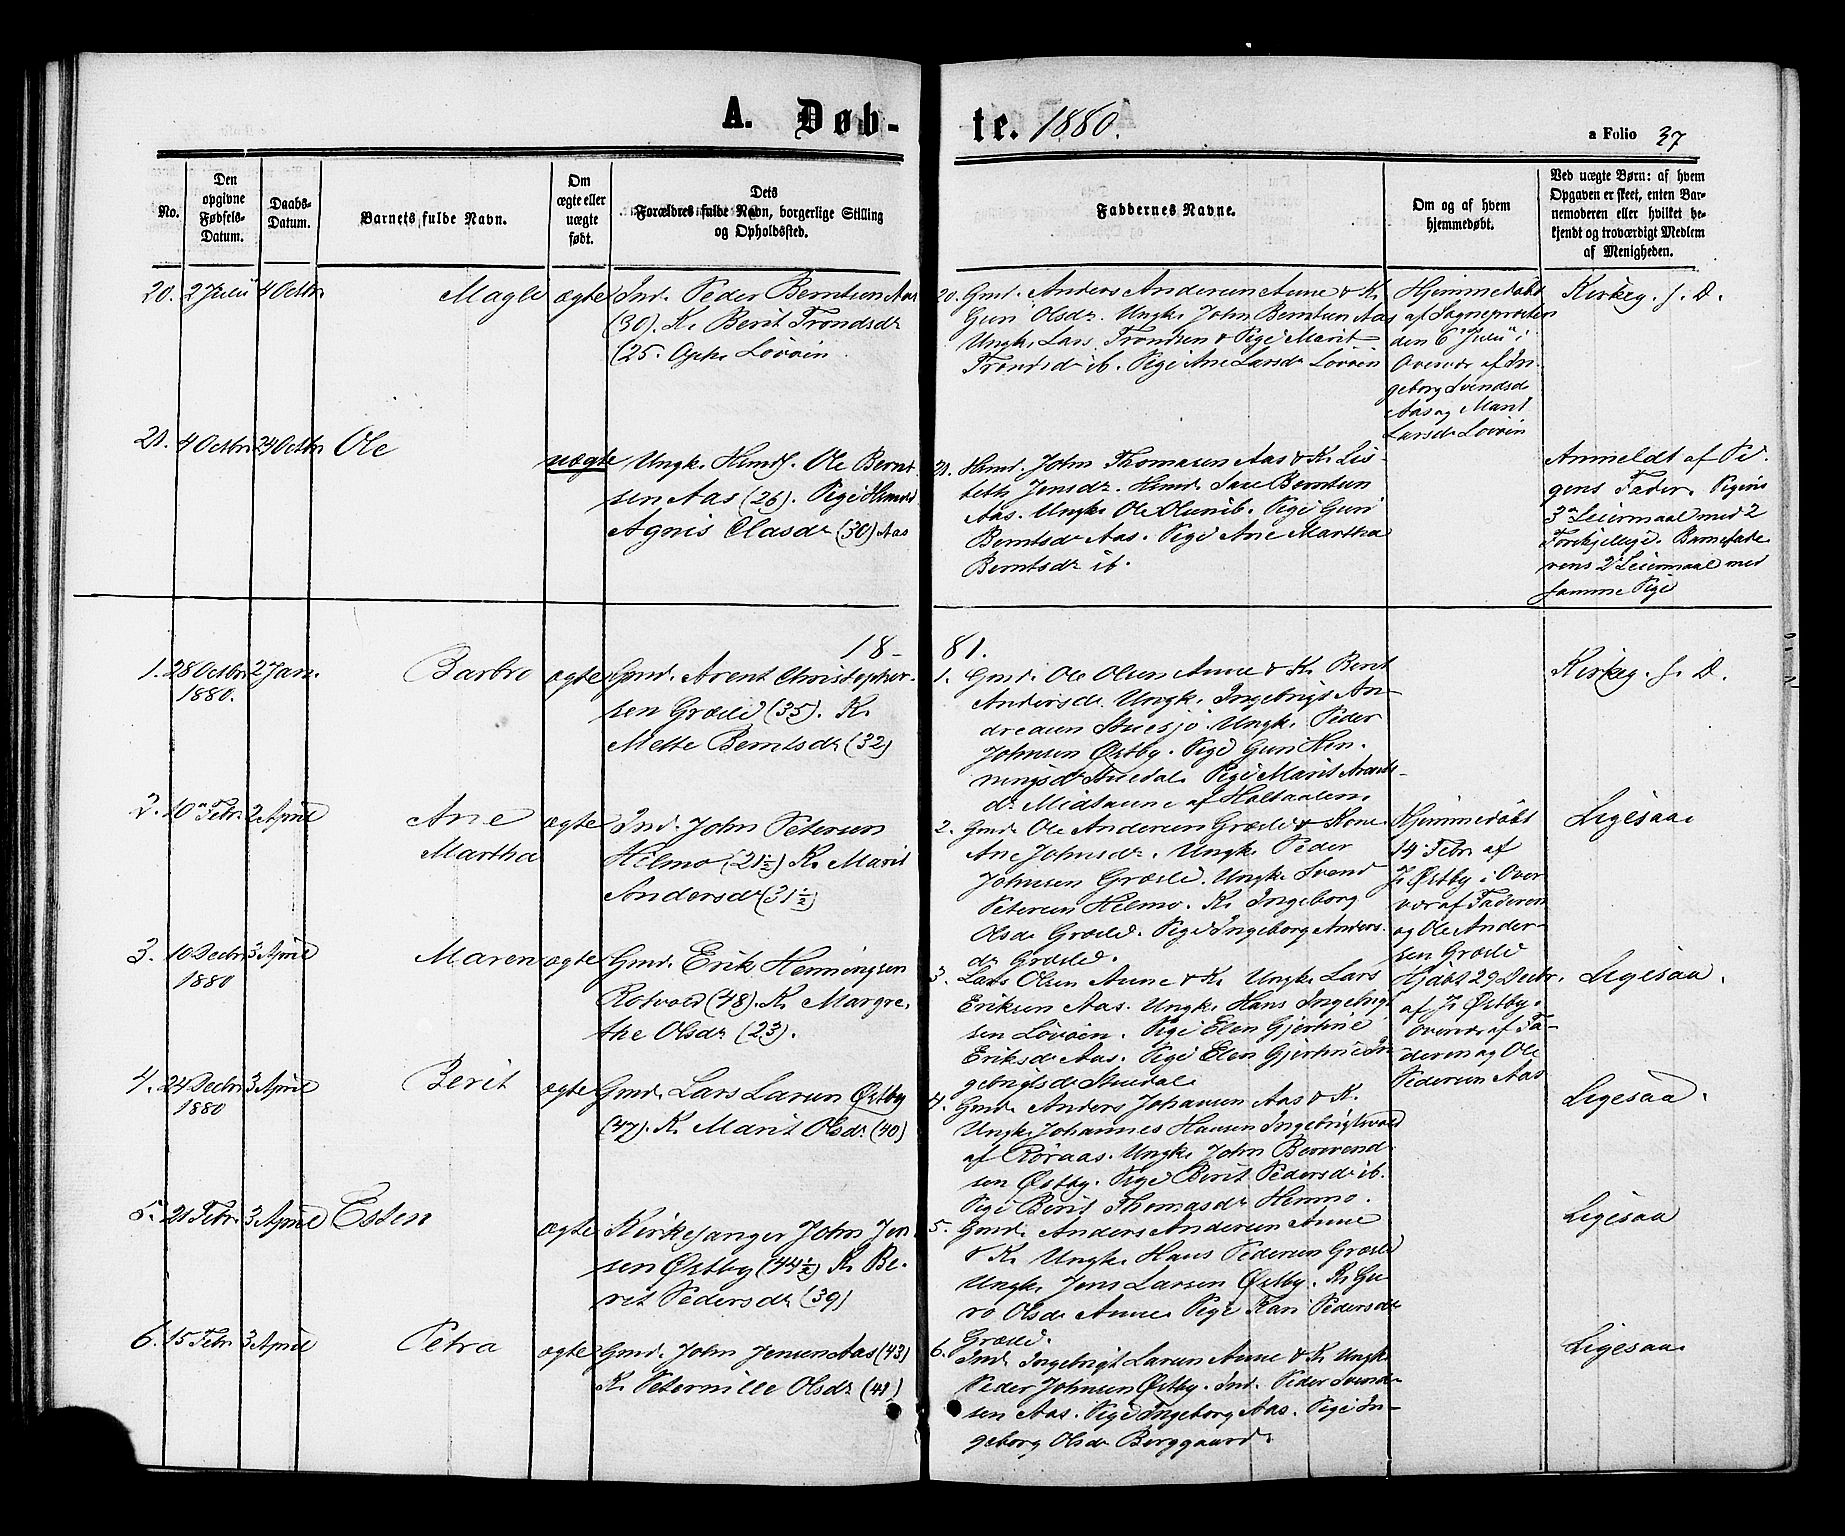 A. Døb-
te. 1880.
a Folio 37
No.
Den
opgivne
Fødsels-
Datum.
Daabs-
Datum.
Barnets fulde Navn.
Om
ægte eller
uægte
født.
Dets
Forældres fulde Navn, borgerlige Stilling
og Opholdssted.
Faddernes Navne.
Om og af hvem
hjemmedøbt.
Ved uægte Børn: af hvem
Opgaven er skeet, enten Bar-
nemoderen eller hvilket be-
kjendt og troværdigt Medlem
af Menigheden.
20. 2 Juli 4 Octbr Magli ægte Ind. Peder Berntsen Aas
(30). K. Berit Trondsdr
(25. Løvøen
20. Gmd. Anders Andersen Aune & K.
Guri Olsdr. Ungk. John Berntsen Aas
Ungk. Lars Trondsen & Pige Marit
Trondsdr ib. Pige Ane Larsdr Løvøen
Hjemmedøbt
af Sognepresten
den 6 Juli i
Overvær af In-
geborg Svendsdr
Aas og Marit
Larsdr Løvøen
Kirkeg. f. D.
21. 4 Octbr 24 Octbr Ole uægte Ungk. Huusmd. Ole Bernt
sen Aas (26). Pige
Agnis Olasdr (30) Aas
21. Huusmd. John Thomasen Aas & K. Lis-
beth Jensdr. Huusmd. Berntsen
Aas. Ungk. Ole Olsen ib. Pige Guri
Berntsdr Aas. Pige Ane Martha
Berntsdr ib.
Anmeldt af Pi-
gens Fader. Pigens
3die Leiermaal med 2
Forskjellige. Barnefade
rens 2det Leiermaal med
samme Pige
18-
81.
1. 28 Octbr 2 Jan. Barbro ægte Gmd. Arent Christopher-
1880. sen Græsli (35). K.
Mette Berntsdr (32)
1. Gmd. Ole Olsen Aune & K. Berit
Andersdr. Ungk. Ingebrigt An-
dreasen Stuesjø. Ungk. Peder
Johnsen Østby. Pige Guri Hen-
ningsdr Stuedal. Pige Marit Arents-
dr Midtaune af Holtaalen.
Kirkeg. f. D.
2. 10de Febr. 2 April Ane ægte Ind. John Petersen
Martha Hilmo (21½) K. Marit
Andersdr (31½)
2. Gmd. Ole Andersen Græsli & Kone
Ane Johnsdr. Ungk. Peder
Johnsen Græsli. Ungk. Svend
Petersen Hilmo. K. Ingeborg
Olsdr Græsli. Pige Ingeborg Anders-
dr Græsli.
Hjemmedøbt
14 Febr. af
J. Østby i Over
vær af Faderen
og Ole Ander-
sen Græsli
Ligesaa
3. 10 Decbr 3 April Maren ægte Gmd. Erik Henningsen
1880 Rotvold (48). K. Margre-
the Olsdr (23).
3. Lars Olsen Aune & K. Ungk. Lars
Eriksen Aas. Ungk. Hans Ingebrigt
sen Løvøen. Pige Elen Gjertine
Eriksdr Aas. Pige Elen Gjertine In
gebrigtsdr Stuedal
Hjdøbt 29 Decbr.
af J. Østby i
Overvær af Fa-
deren og Ole
Pedersen Aas
Ligesaa.
4. 24 Decbr 3 April Berit ægte Gmd. Lars Larsen Østby
1880 (47). K. Marit Olsdr (40)
4. Gmd. Anders Johansen Aas & K.
Ungk. Johannes Hansen Ingebrigtsvold
af Røraas. Ungk. John
sen Østby. Pige Berit Pedersdr ib.
Pige Berit Thomasdr Hemmo.
Ligesaa.
5. 21 Febr. 3 April Esten ægte Kirkesanger John Jen
sen Østby (44½) K. Be-
rit Pedersdr (39)
5. Gmd. Anders Andersen Aune
& K. Ungk. Hans Pedersen Græsli
Ungk. Jens Larsen Østby. K. Gu-
ro Olsdr Aune. Pige Kari Pedersdr
Græsli.
Ligesaa
6. 15 Febr. 3 April Petra ægte Gmd. John Jensen Aas (43)
K. Peternille Olsdr (41)
6. Ind. Ingebrigt Larsen Aune & K. Ungk.
Peder Johnsen Østby. Ind. Peder Svend-
sen Aas. Pige Ingeborg Aas. Pige In-
geborg Olsdr Berggaard.
Ligesaa